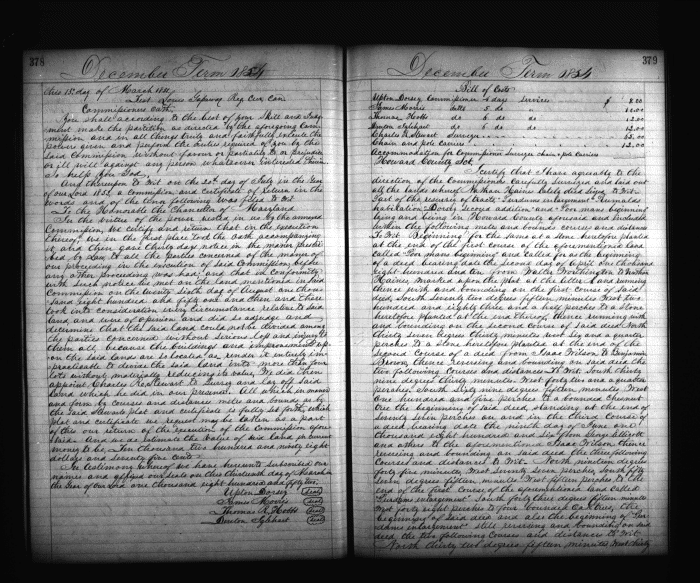 378
December Term 1854
this 1st day of March 1851
Test Louis Gassaway Reg Cur Can
Commissioners Oath
You shall according to the best of your Skill and Judg-
ment make the partition as directed in the aforegoing Com-
mission and in all things truly and faithfully execute the
powers given and perform the duties required of you by the
said Commission without favour or partiality to or prejudice
or ill will against any person whatever interested therein
So help you God
And thereupon to Wit on the 20th day of July in the Year
of our Lord 1852, a Commission and certificate of return in the
words and of the tenor following was filed to Wit
To the Honorable the Chancellor of Maryland
In the virtue of the power vested in us by the annexed
Commission, We certify and return that in the execution
thereof, we in the first place took the oath accompanying
it and then gave thirty days notice in the manner prescri-
bed by Law to all the parties concerned of the manner of
our proceeding in the execution of said Commission before
any other proceeding was had, and that in conformity
with such notice we met on the land mentioned in said
Commission on the twenty sixth day of August one thou-
sand eight hundred and fifty one and then and there
took into consideration every circumstance relative to said
land and were of opinion and did so adjudge and
determine that the said land could not be divided among
the parties concerned without serious loss and injury to
them all because the buildings and improvements up-
on the said land are so located as render it entirely im-
practicable to divide the said land into more than four
lots without materially reducing its value. We did then
appoint Charles R. Stewart to Survey and lay off said
Land which he did in our presence. All which in manner
and form by courses and distances metes and bounds as by
the said Stewarts plat and certificate is fully set forth, which
plat and certificate we request may be taken as a part
of this our return of the execution of the Commission afore-
said. And we do estimate the Value of said land in current
money to be Ten thousand two hundred and ninety eight
dollars and seventy five cents
In testimony whereof we have hereunto subscribed our
names and affixed our seals on this thirteenth day of March in
the Year of our Lord one thousand eight hundred and fifty two.
Upton Dorsey (Seal)
James Morris (Seal)
Thomas R. Hobbs (Seal)
Denton (Seal)
379
December Term 1854
Bill of Costs
Upton Dorsey Commissioner 4 days services $ 8.00
James Morris ditto 5 do
Thomas Hobbs do 6 do do 12.00
Denton do 6 do do 12.00
Charles R Stewart Surveyor
Chain and pole Carriers 12.00
Accommodation for Commissioners Surveyor chain & pole Carriers
Howard County Sct.
I certify that I have agreeably to the
direction of the Commissioners Carefully surveyed and laid out
all the lands whereof Nathan Haines lately died seized to Wit.
Part of the resurvey of tracts
Habitation Dorseys Second addition and Four mans beginning
lying and being in Howard County aforesaid and included
within the following metes and bounds courses and distances
To Wit. Beginning for the same at a stone heretofore planted
at the end of the first course of the aforementioned land
called Four mans beginning and called for as the beginning
of a deed bearing date the second day of April one thousand
eight hundred and ten from Walter Worthington to Nathan
Haines marked upon the plat at the letter A and running
thence with and bounding on the first course of said
deed, South seventy two degrees fifteen minutes West two
hundred and eighty three and a half perches to a stone
heretofore planted at the end thereof, thence running with
and bounding on the second course of said deed North
thirty seven degrees thirty minutes West six and a quarter
perches to a stone heretofore planted at the end of the
second course of a deed from Isaac Wilson to Benjamin
thence reversing and bounding on said deed the
two following courses and distances to Wit. South thirty
nine degrees thirty minutes West forty two and a quarter
perches. South sixty nine degrees fifteen minutes West
one hundred and five perches to a bounded Chesnut
tree the beginning of said deed, standing at the end of
seventy seven perches on and in the third course of
a deed bearing date the ninth day of June one
thousand eight hundred and six from George Ellicott
and others to the aforementioned Isaac Wilson thence
reversing and bounding on said deed the three following
courses and distances to Wit. North nineteen degrees
forty five minutes West seventy seven perches, South fifty
seven degrees fifteen minutes West fifteen perches to the
end of the first course of the aforementioned land called
enlargement South forty three degrees fifteen minutes
West forty eight perches to four bounded Oaks, the
beginning of said deed and also the beginning of
enlargement still reversing and bounding on said
deed, the two following courses and distances to Wit
North thirty two degrees fifteen minutes West thirty